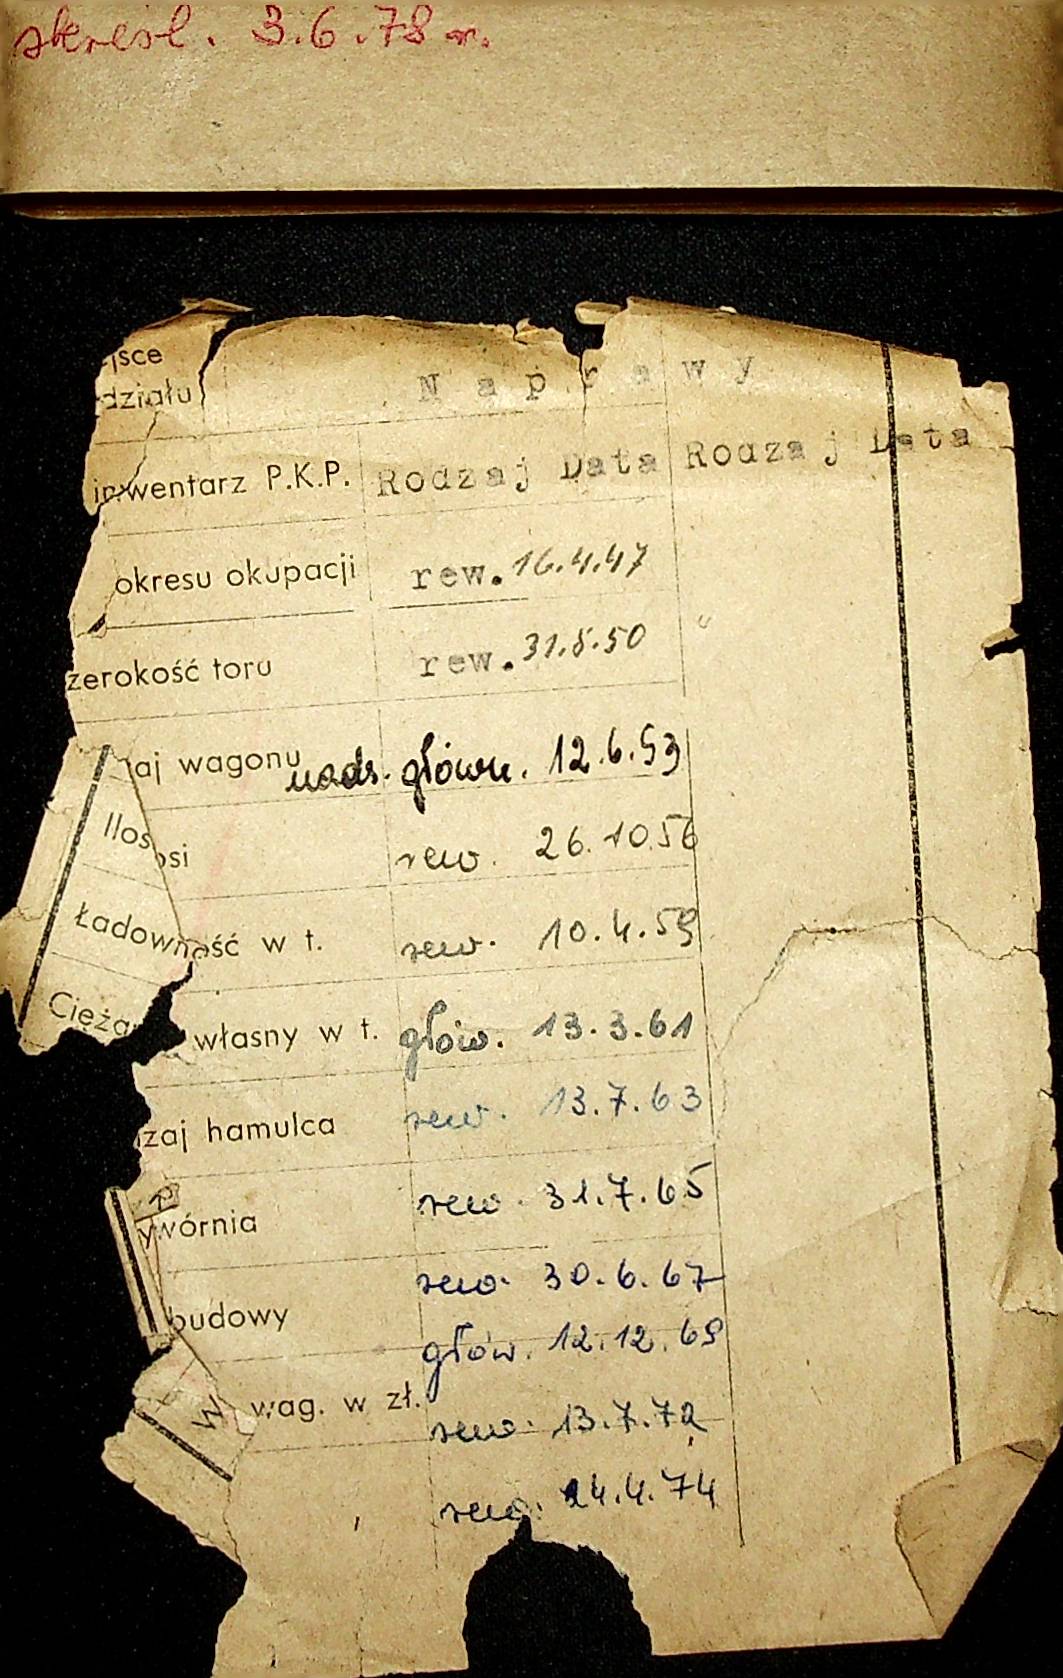 skreśl. 3.6.78 r.
jsce
działu
Naprawy
inwentarz P.K.P. Rodzaj Data Rodzaj Data
okresu okupacji rew. 16.4.47
zerokość toru rew. 31.8.50
aj wagonu nads. główn. 12.6.53
Ilość osi rew. 26.10.56
Ładowność w t. rew. 10.4.59
Ciężar własny w t. głów. 13.3.61
zaj hamulca rew. 13.7.63
ywórnia rew. 31.7.65
budowy rew. 30.6.67
głów. 12.12.69
W wag. w zł. rew. 13.7.72
rew. 24.4.74